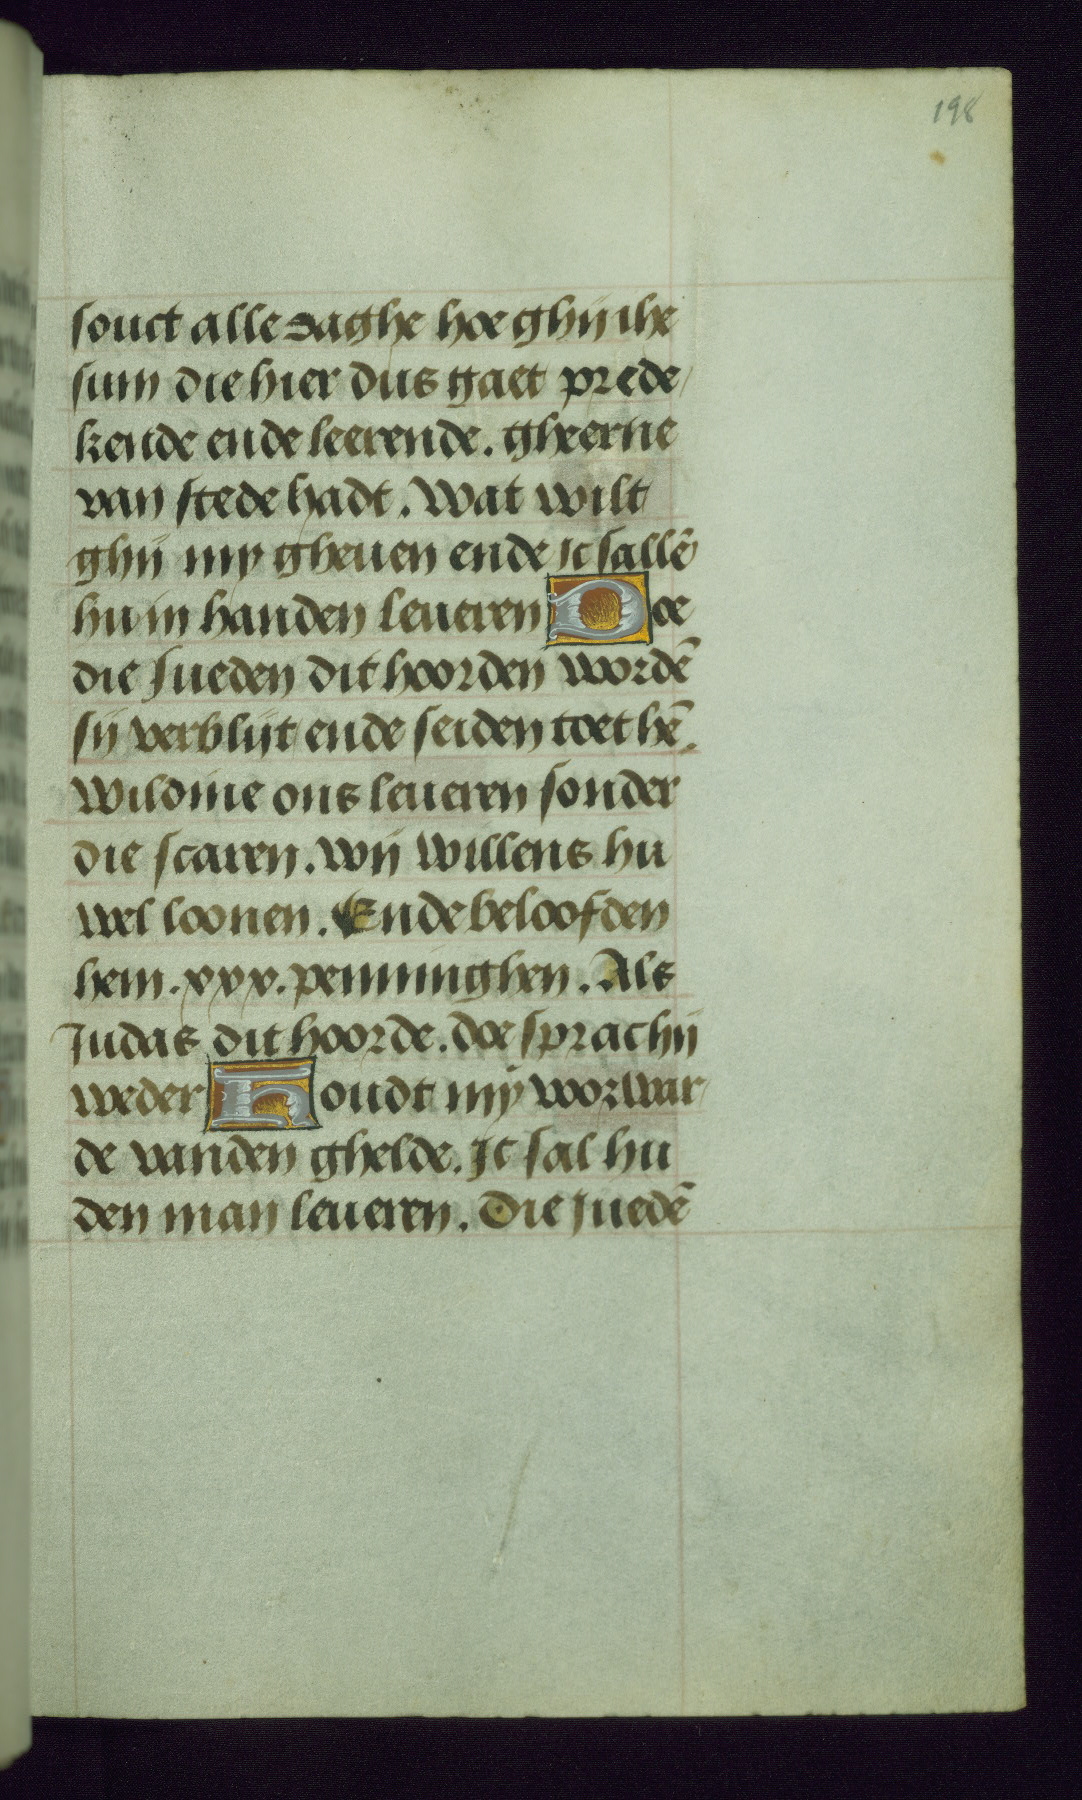 198
souct alle daghe hoe ghij ihe
sum die hier dus gaet prede
kende ende leerende. gheerne
van stede hadt. Wat wilt
ghij my gheuen ende ic sallē
hu in handen leueren Doe
die Jueden dit hoorden wordē
sij verblijt ende seiden toet hē.
Wildine ons leueren sonder
die scaren. Wij willens hu
wel loonen. Ende beloofden
hem .xxx. penninghen. Als
Judas dit hoorde. doe sprac hij
weder Houdt mij vorwar
de vanden ghelde. Ic sal hu
den man leueren. Die Juedē